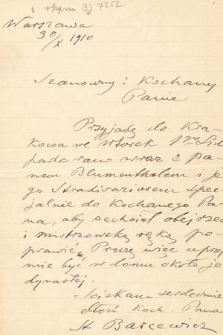 z rkpsu BJ 7252
Warszawa
30/X 1910
Szanowny i Kochany
Panie
Przyjadę do Kra-
kowa we wtorek 1go Listo
pada rano wraz z pa
nem Blumenthalem i je
go Stradivariusem spec
jalnie do Kochanego Pa
na, aby zechciał obejrzeć
i mistrzowską ręką po
prawić. Proszę więc uprzej
mie być w domu około je
dynastej.
Ściskam serdecznie
dłoń Koch. Pana
St Barcewicz